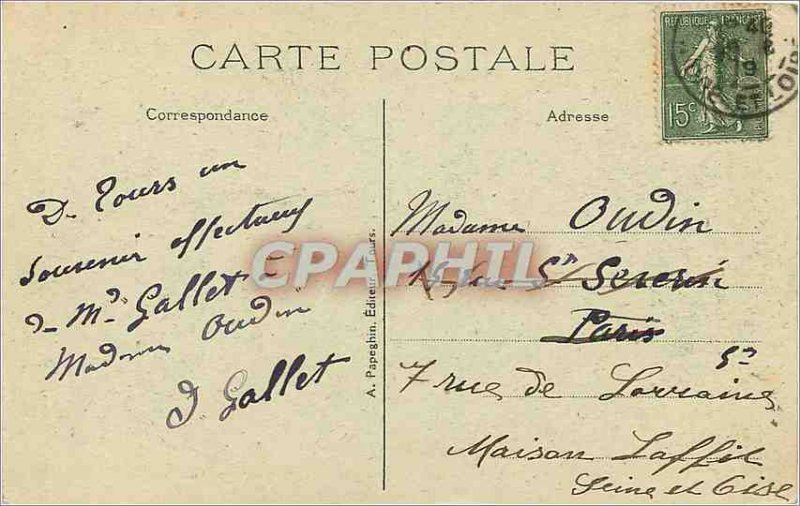 CARTE POSTALE
RÉPUBLIQUE FRANÇAISE
15c
LOIR
Correspondance
Adresse
De Tours un
souvenir affectueux
de Md Gallet à
Madame Oudin
J. Gallet
A. Papeghin, Éditeur, Tours.
CPAPHIL
Madame Oudin
15 rue St Severin
Paris
7 rue de Lorraine
Maison Laffit
Seine et Oise